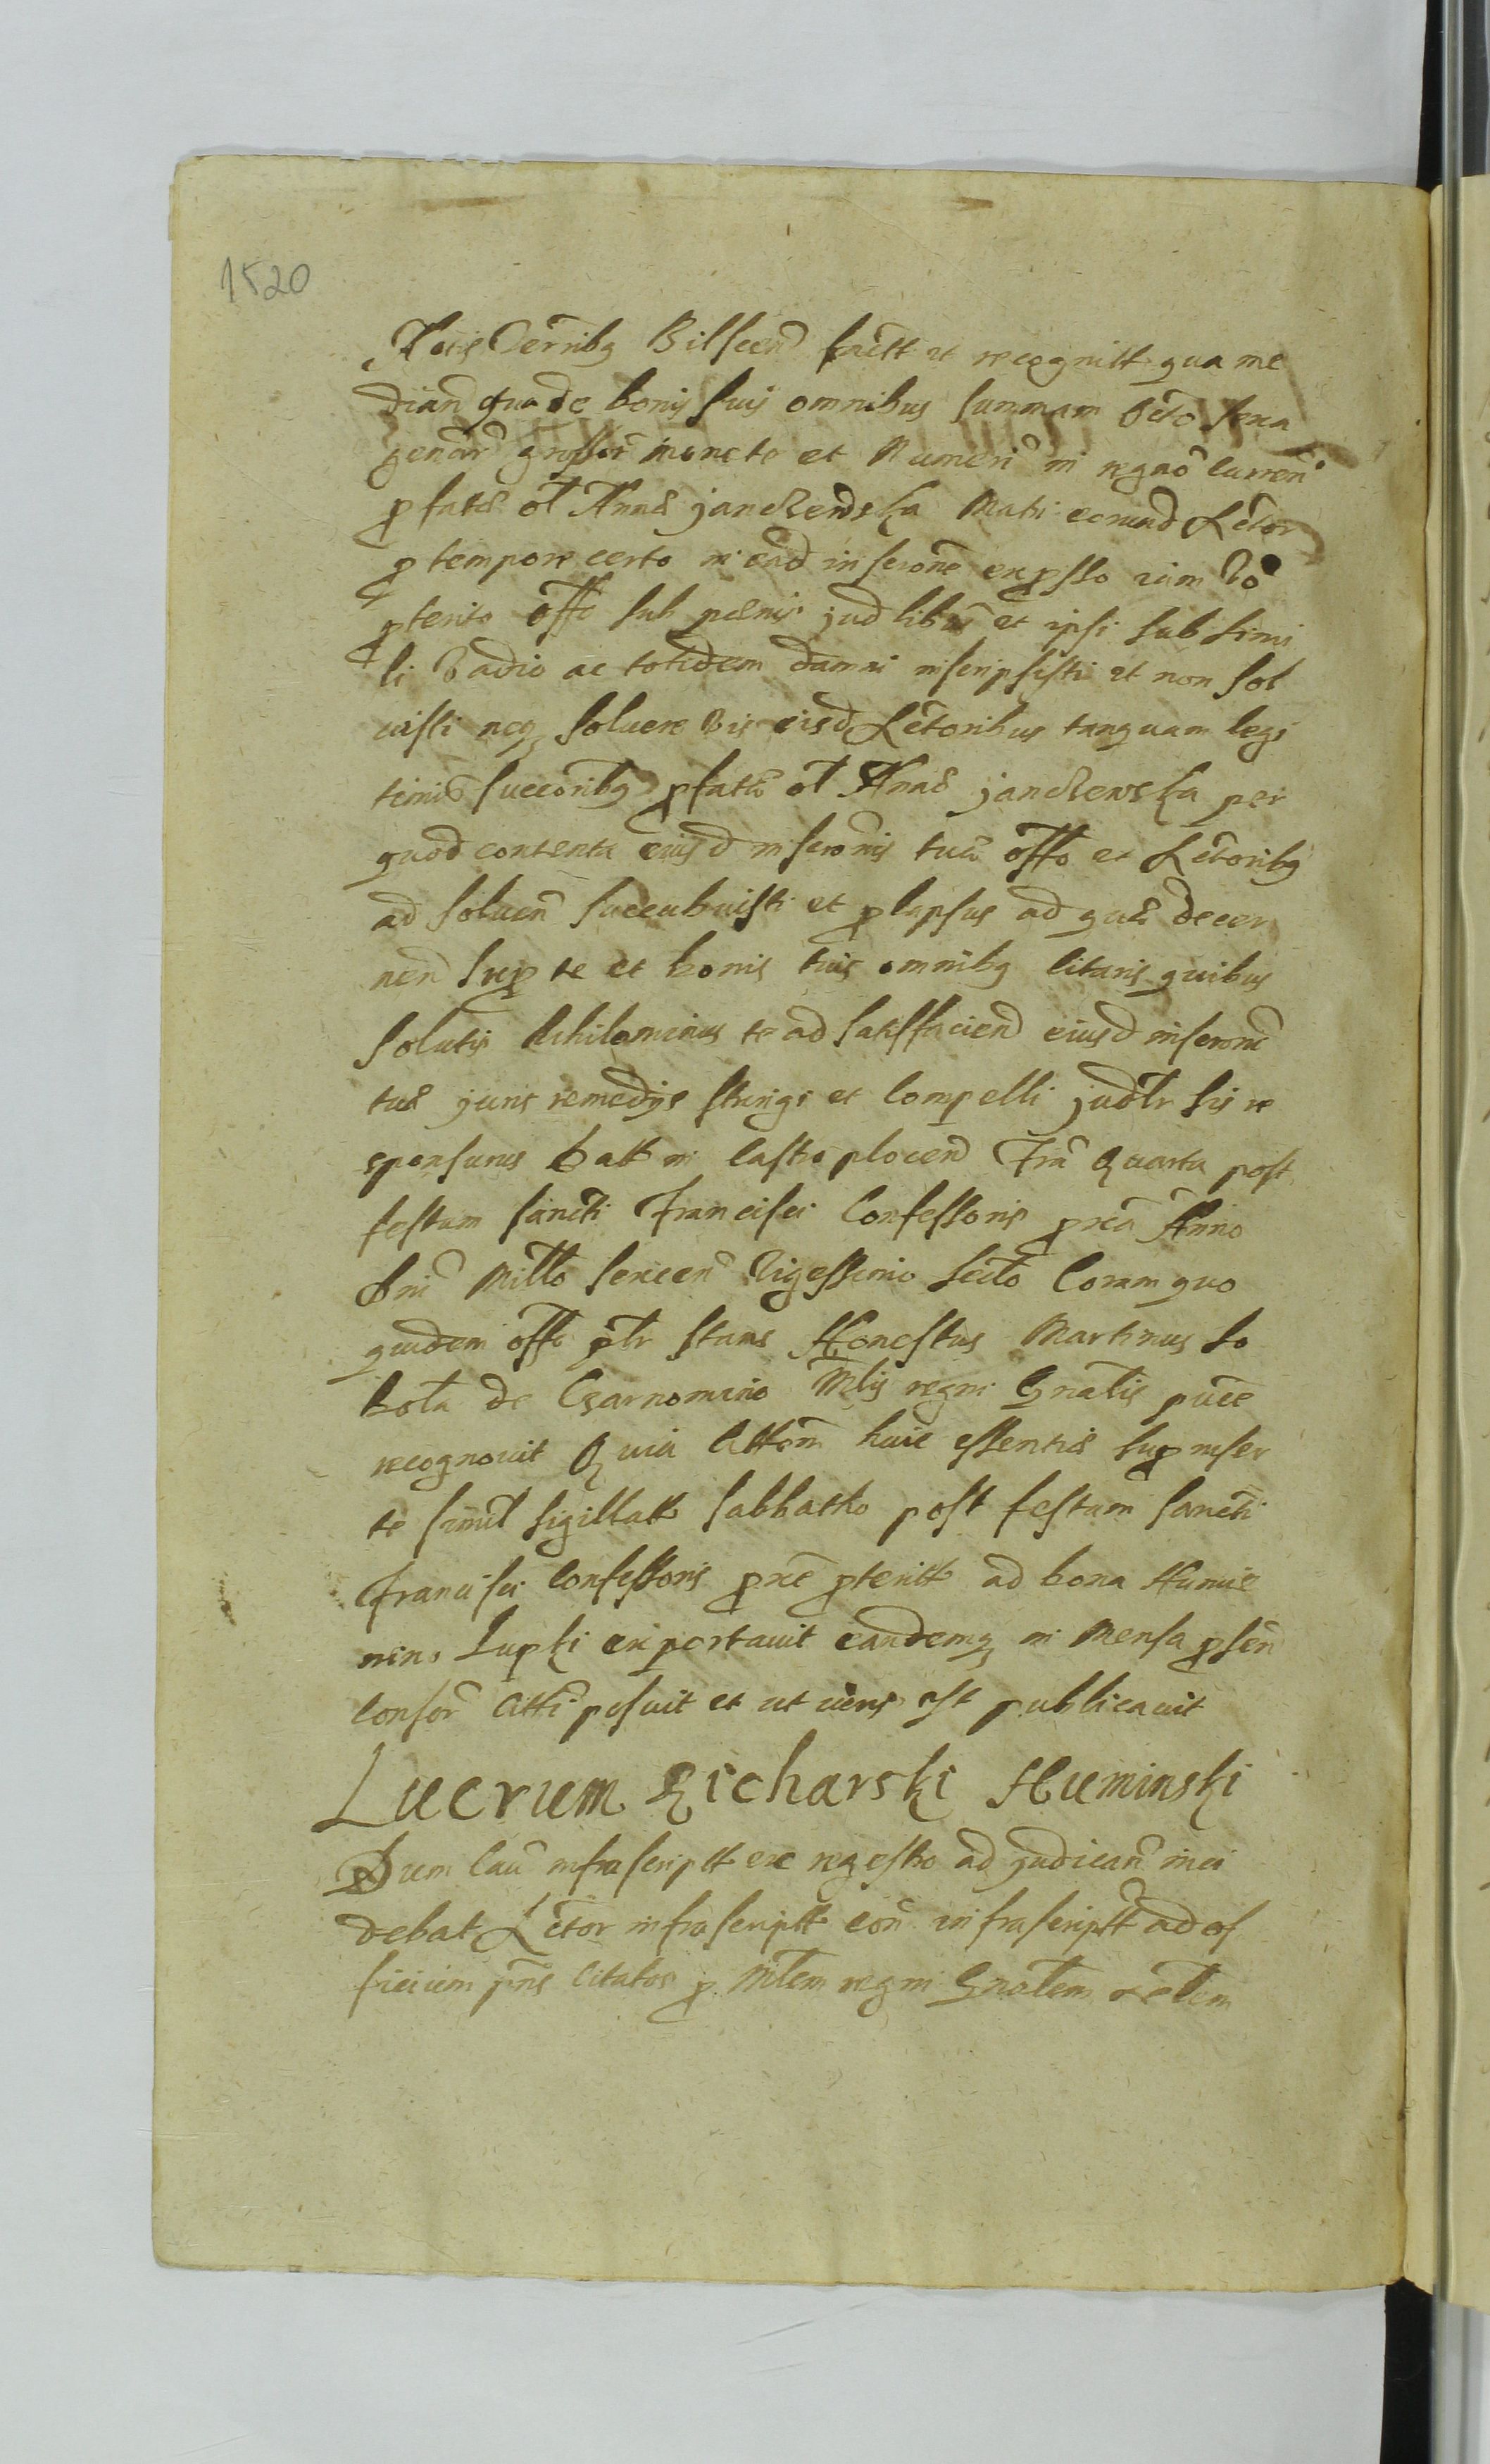 1520
Actis Terribq Bilscen factt et recognitt qua me
dian qua de bonis suis omnibus summam Octo sexa
genar grossor monete et Numeri in regno curren
pfate ol Annae Janczewska Matri eorund Actor
p tempore certo in ead inscrone expsso iam
pterito offo sub paenis jud libus et ipsi sub simi
li Vadio ac totidem damni inscripsisti et non sol
uisti neq soluere vis eisd Actoribus tanquam legi
timis succoribq pfatae ol Annae Janczewska per
quod contenta eiusd inscronis tuae offo et Actoribq
ad soluen succubuisti et plapsus ad quae decer
nen sup te et bonis tuis omnibq citaris quibus
solutis Nihilominus te ad satisfaciend eiusd inscrone
tuae juris remedijs stringi et Compelli judlr sis re
sponsurus Datt in Castro plocen Fra Quarta post
festum sancti Francisci Confessoris pxa Anno
Dni Millo sexcen Vigessimo scdo Coram quo
quidem offo pltr stans Honestus Martinus So
bota de Czarnomino Mlis regni Gnalis puce
recognouit Quia Cittem huic essentiae sup inser
te simil sigillatt Sabbatho post festum sancti
Francisci Confessoris pxe pteritt ad bona Humie
nino Lupki exportauit eandemq in Mensa psen
Consor Citti posuit et ut ueris est publicauit
Lucrum Richarski Huminski
Dum Cau infrascriptt exe regestro ad judican inci
debat Actor infrascriptt con infrascriptt ad of
ficium pns Citatos p Mlem regni Gnalem relem